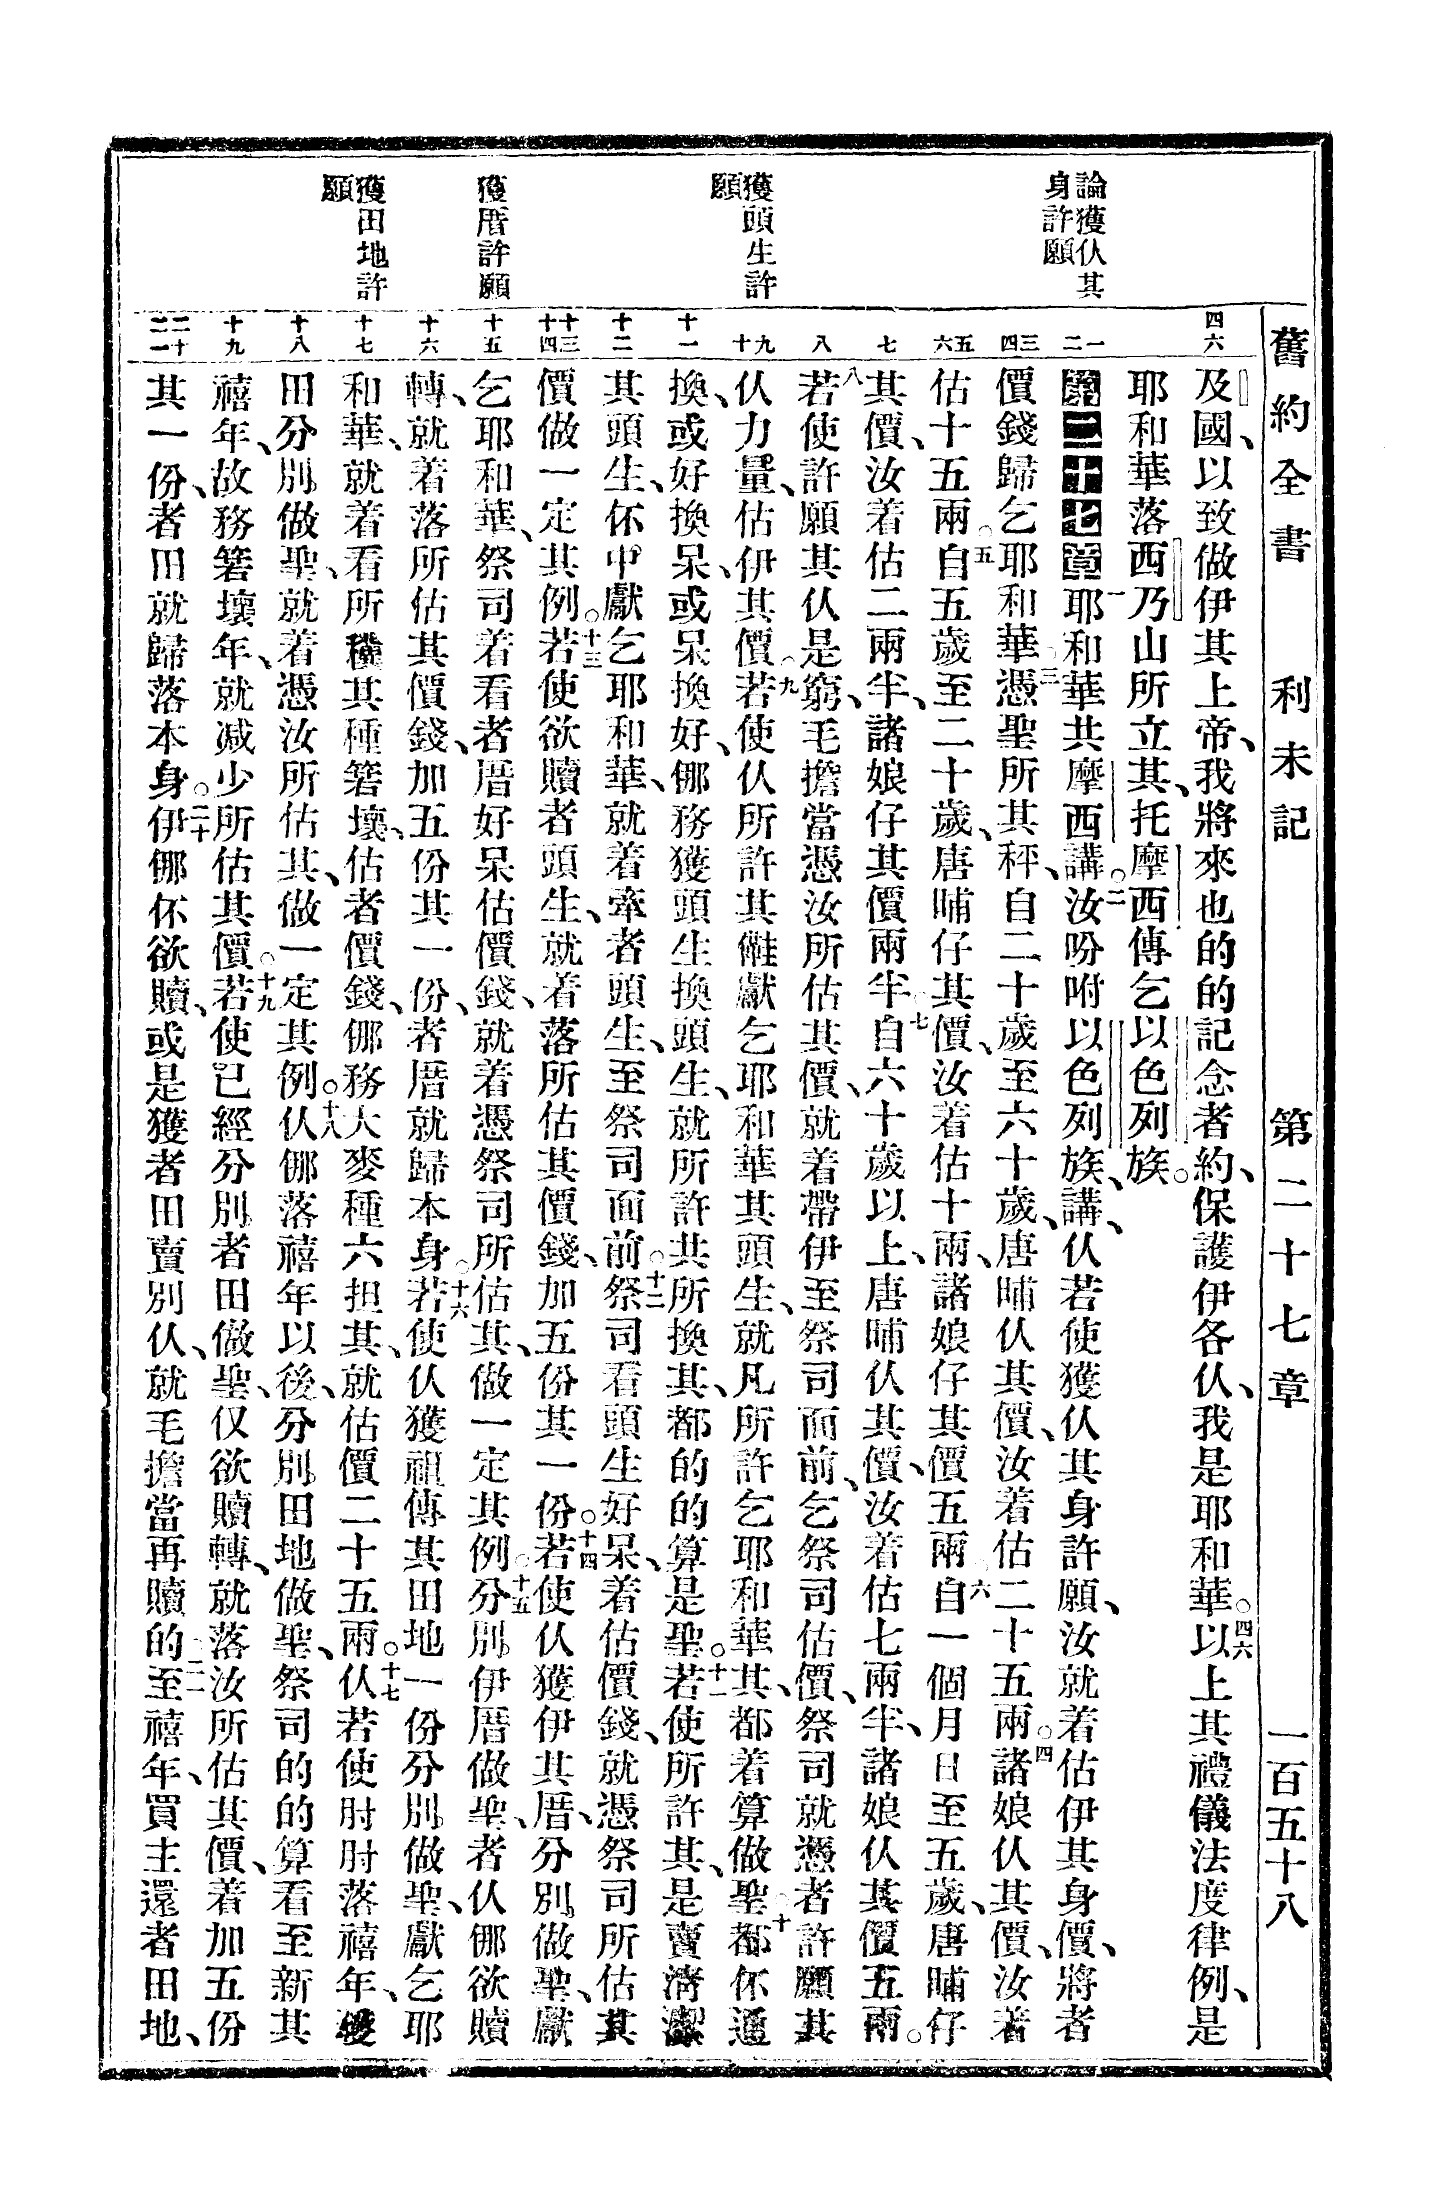 舊約全書 利未記 第二十七章 一百五十八
論獲仈其身許願
獲頭生許願
獲厝許願
獲田地許願
及國、以致做伊其上帝、我將來也的的記念者約、保護伊各仈、我是耶和華。四六以上其禮儀法度律例、是
耶和華落西乃山所立其、托摩西傳乞以色列族。
第二十七章一耶和華共摩西講。二汝吩咐以色列族、講、仈若使獲仈其身許願、汝就着估伊其身價、將者
價錢歸乞耶和華。三憑聖所其秤、自二十歲至六十歲、唐晡仈其價、汝着估二十五兩。四諸娘仈其價、汝着
估十五兩。五自五歲至二十歲、唐晡仔其價、汝着估十兩、諸娘仔其價五兩。六自一個月日至五歲、唐晡仔
其價、汝着估二兩半、諸娘仔其價兩半。七自六十歲以上、唐晡仈其價、汝着估七兩半、諸娘仈其價五兩。
八若使許願其仈是窮、毛擔當憑汝所估其價、就着帶伊至祭司面前、乞祭司估價、祭司就憑者許願其
仈力量、估伊其價。九若使仈所許其㒕獻乞耶和華其頭生、就凡所許乞耶和華其、都着算做聖。十都伓通
換、或好換呆、或呆換好、㑚務獲頭生換頭生、就所許共所換其、都的的算是聖。十一若使所許其、是賣清潔其
其頭生、伓中獻乞耶和華、就着牽者頭生、至祭司面前。十二祭司看頭生好呆、着估價錢、就憑祭司所估其
價做一定其例。十三若使欲贖者頭生、就着落所估其價錢、加五份其一份。十四若使仈獲伊其厝、分別做聖、獻
乞耶和華、祭司着看者厝好呆估價錢、就着憑祭司所估其、做一定其例。十五分別伊厝做聖、者仈㑚欲贖
轉、就着落所估其價錢、加五份其一份、者厝就歸本身。十六若使仈獲祖傳其田地一份分別做聖、獻乞耶
和華、就着看所種其種箬壞、估者價錢、㑚務大麥種六担其、就估價二十五兩。十七仈若使肘肘落禧年、獲
田分別做聖、就着憑汝所估其、做一定其例。十八仈㑚落禧年以後、分別田地做聖、祭司的的算看至新其
禧年、故務箬壞年、就減少所估其價。十九若使已經分別者田做聖、仅欲贖轉、就落汝所估其價、着加五份
其一份、者田就歸落本身。二十伊㑚伓欲贖、或是獲者田賣別仈、就毛擔當再贖的。二一至禧年、買主還者田地、